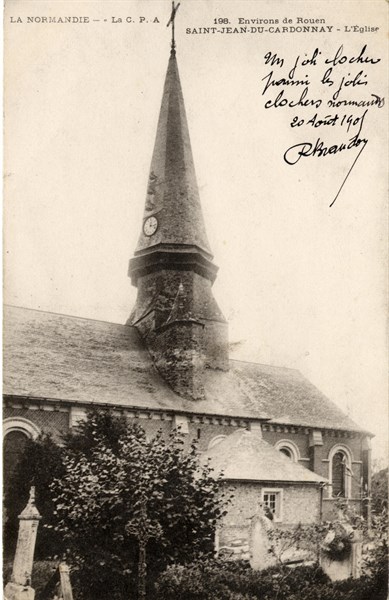 LA NORMANDIE — - La C. P. A 198. Environs de Rouen
SAINT-JEAN-DU-CARDONNAY - L'Église
Un joli clocher
parmi les jolis
clochers normands
20 Août 190